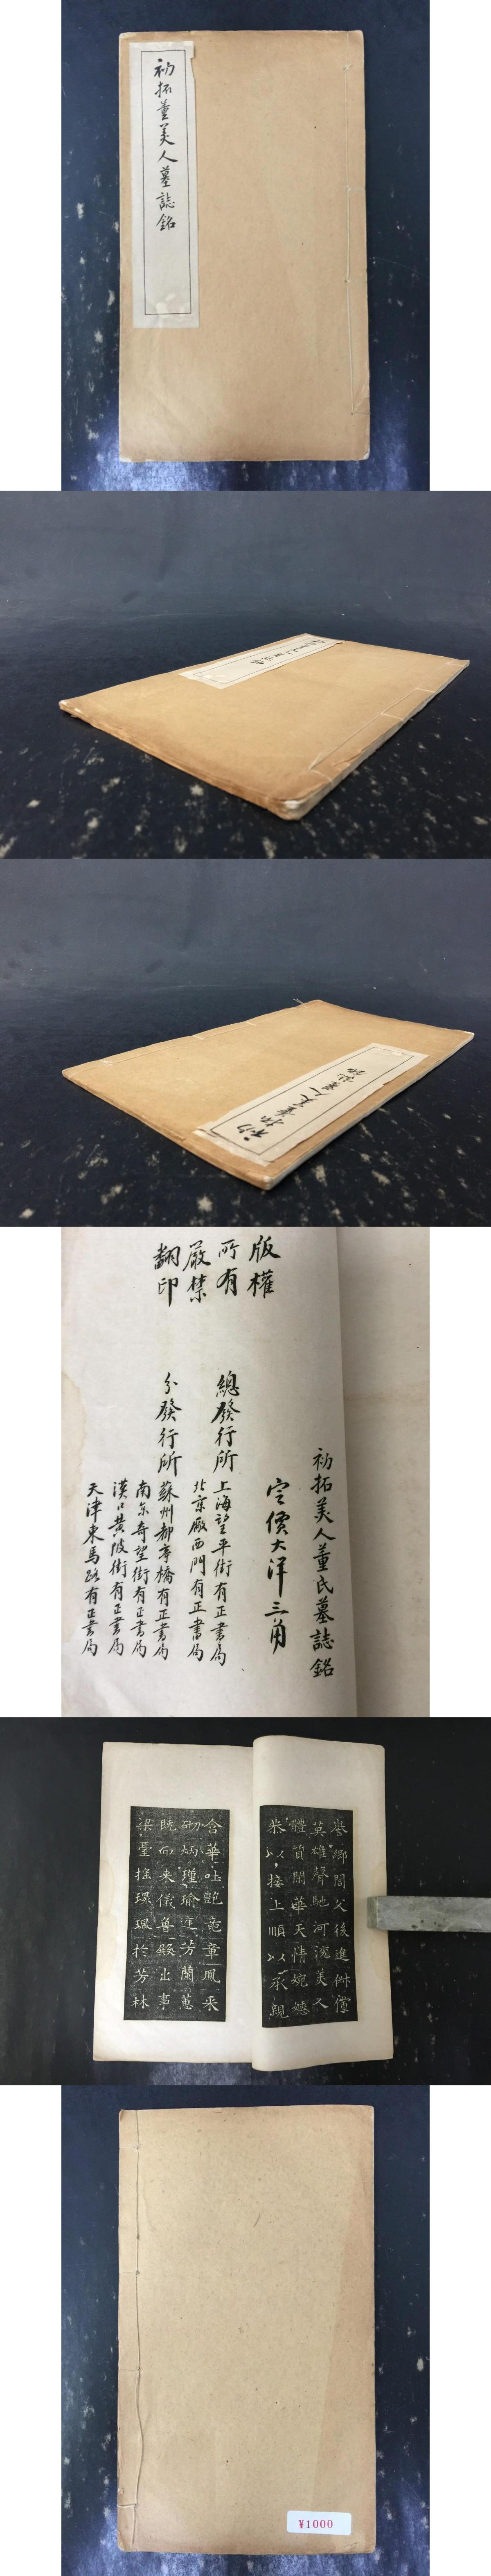 初拓董美人墓誌銘
初拓美人董氏墓誌銘
定價大洋三角
版權
所有
嚴禁
翻印
總發行所
上海望平街有正書局
北京廠西門有正書局
分發行所
蘇州都亭橋有正書局
南京奇望街有正書局
漢口黄陂街有正書局
天津東馬路有正書局
譽鄉閭父後進俶儻
英雄聲馳河渷美人
體質閑華天情婉嫕
恭以接上順以承親
含華吐艷竜章鳳采
砌炳瑾瑜庭芳蘭蕙
既而来儀魯殿出事
梁臺搖環珮於芳林
¥1000